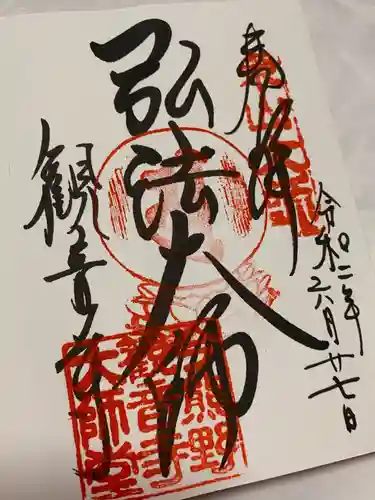 奉拝
令和二年六月廿七日
弘法大師
観音寺
熊野
観音寺
大師堂